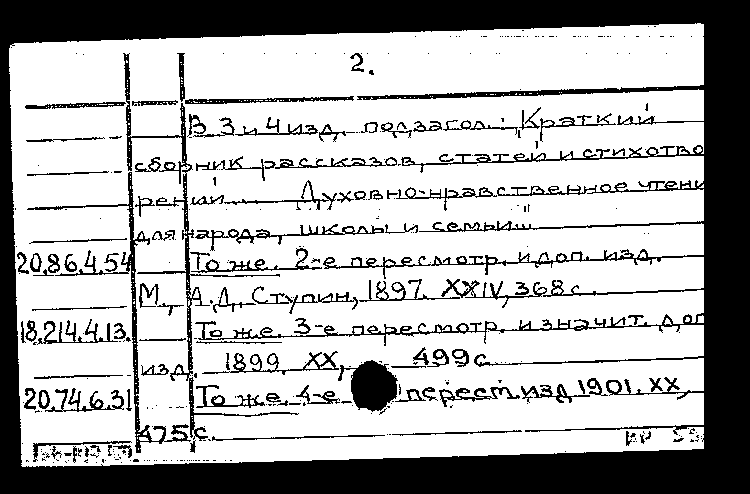 2.
В 3 и 4 изд. подзагол.: „Краткий
сборник рассказов, статей и стихотво
рений.... Духовно-нравственное чтени
для народа, школы и семьи"
20.86.4.54 То же. 2-е пересмотр. и доп. изд.
М., А.Д. Ступин, 1897. XXIV, 368 с.
18.214.4.13. То же. 3-е пересмотр. и значит. доп
изд. 1899. XX, 499 с
20.74.6.31 То же. 4-е перест. изд 1901. XX,
475 с.